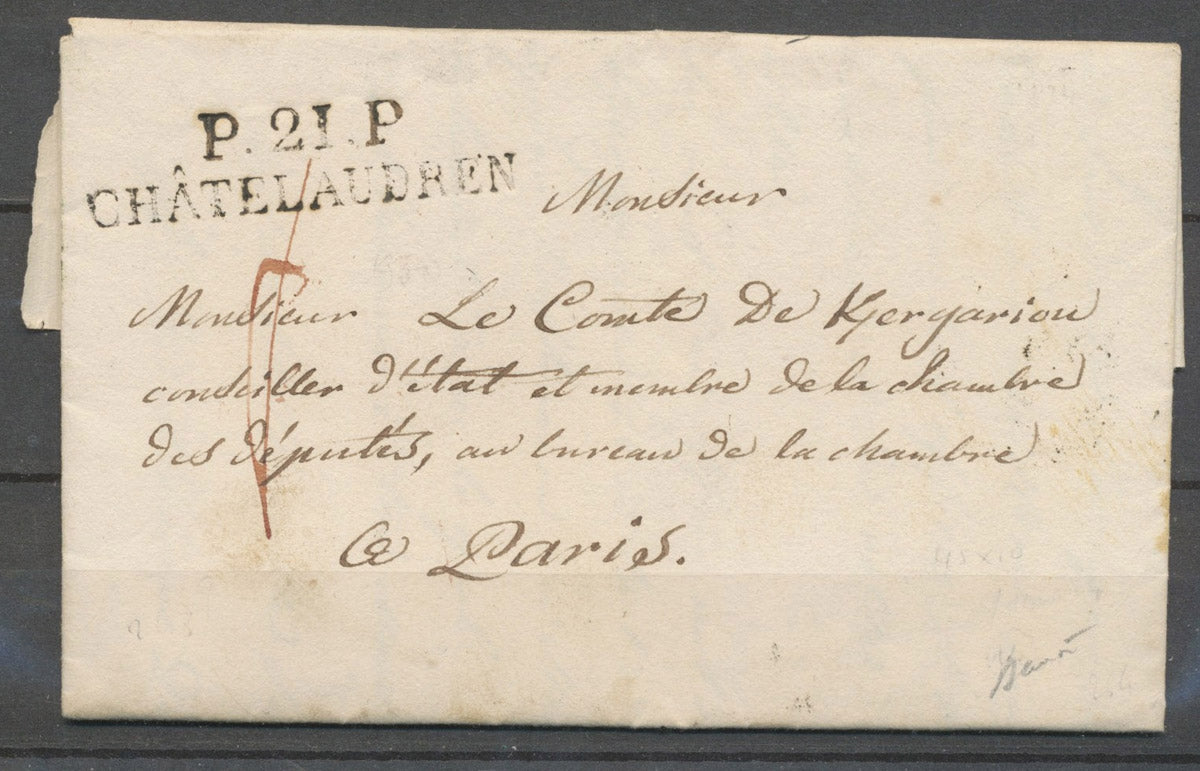 P.21.P
CHÂTELAUDREN
Monsieur
Monsieur Le Comte De Kergariou
conseiller d'état et membre de la chambre
des députés, au bureau de la chambre
a Paris.
45x10